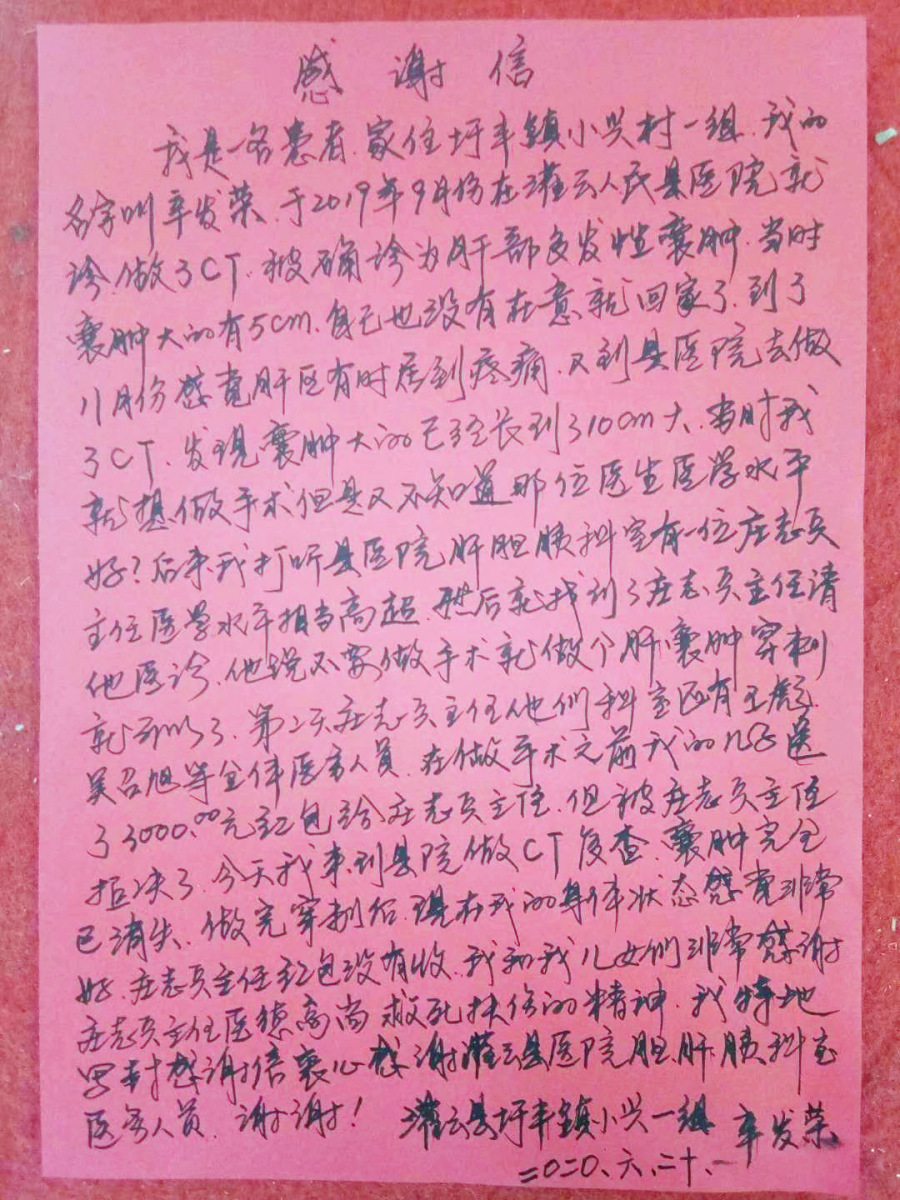 感谢信
我是一名患者.家住圩丰镇小兴村一组.我的
名字叫辛发荣.于2019年9月份在灌云人民县医院就
诊.做了CT.被确诊为肝部多发性囊肿.当时
囊肿大的有5cm.自己也没有在意就回家了.到了
11月份感觉肝区有时感到疼痛.又到县医院去做
了CT.发现囊肿大的已经长到了10cm大.当时我
就想做手术但是又不知道那位医生医学水平
好?后来我打听县医院肝胆胰科室有一位庄志兵
主任医学水平相当高超.然后就找到了庄志兵主任请
他医诊.他说不要做手术就做个肝囊肿穿刺
就可以了.第二天庄志兵主任他们科室还有王彪
吴召旭等全体医务人员.在做手术之前我的儿子送
了3000.00元红包给庄志兵主任.但被庄志兵主任
拒决了.今天我来到县院做CT复查.囊肿完全
已消失.做完穿刺后现在我的身体状态感觉非常
好.庄志兵主任红包没有收.我和我儿女们非常感谢
庄志兵主任医德高尚救死扶伤的精神.我特地
写封感谢信衷心感谢灌云县医院胆肝胰科室
医务人员.谢谢!灌云县圩丰镇小兴一组 辛发荣
二〇二〇、六、二十、一